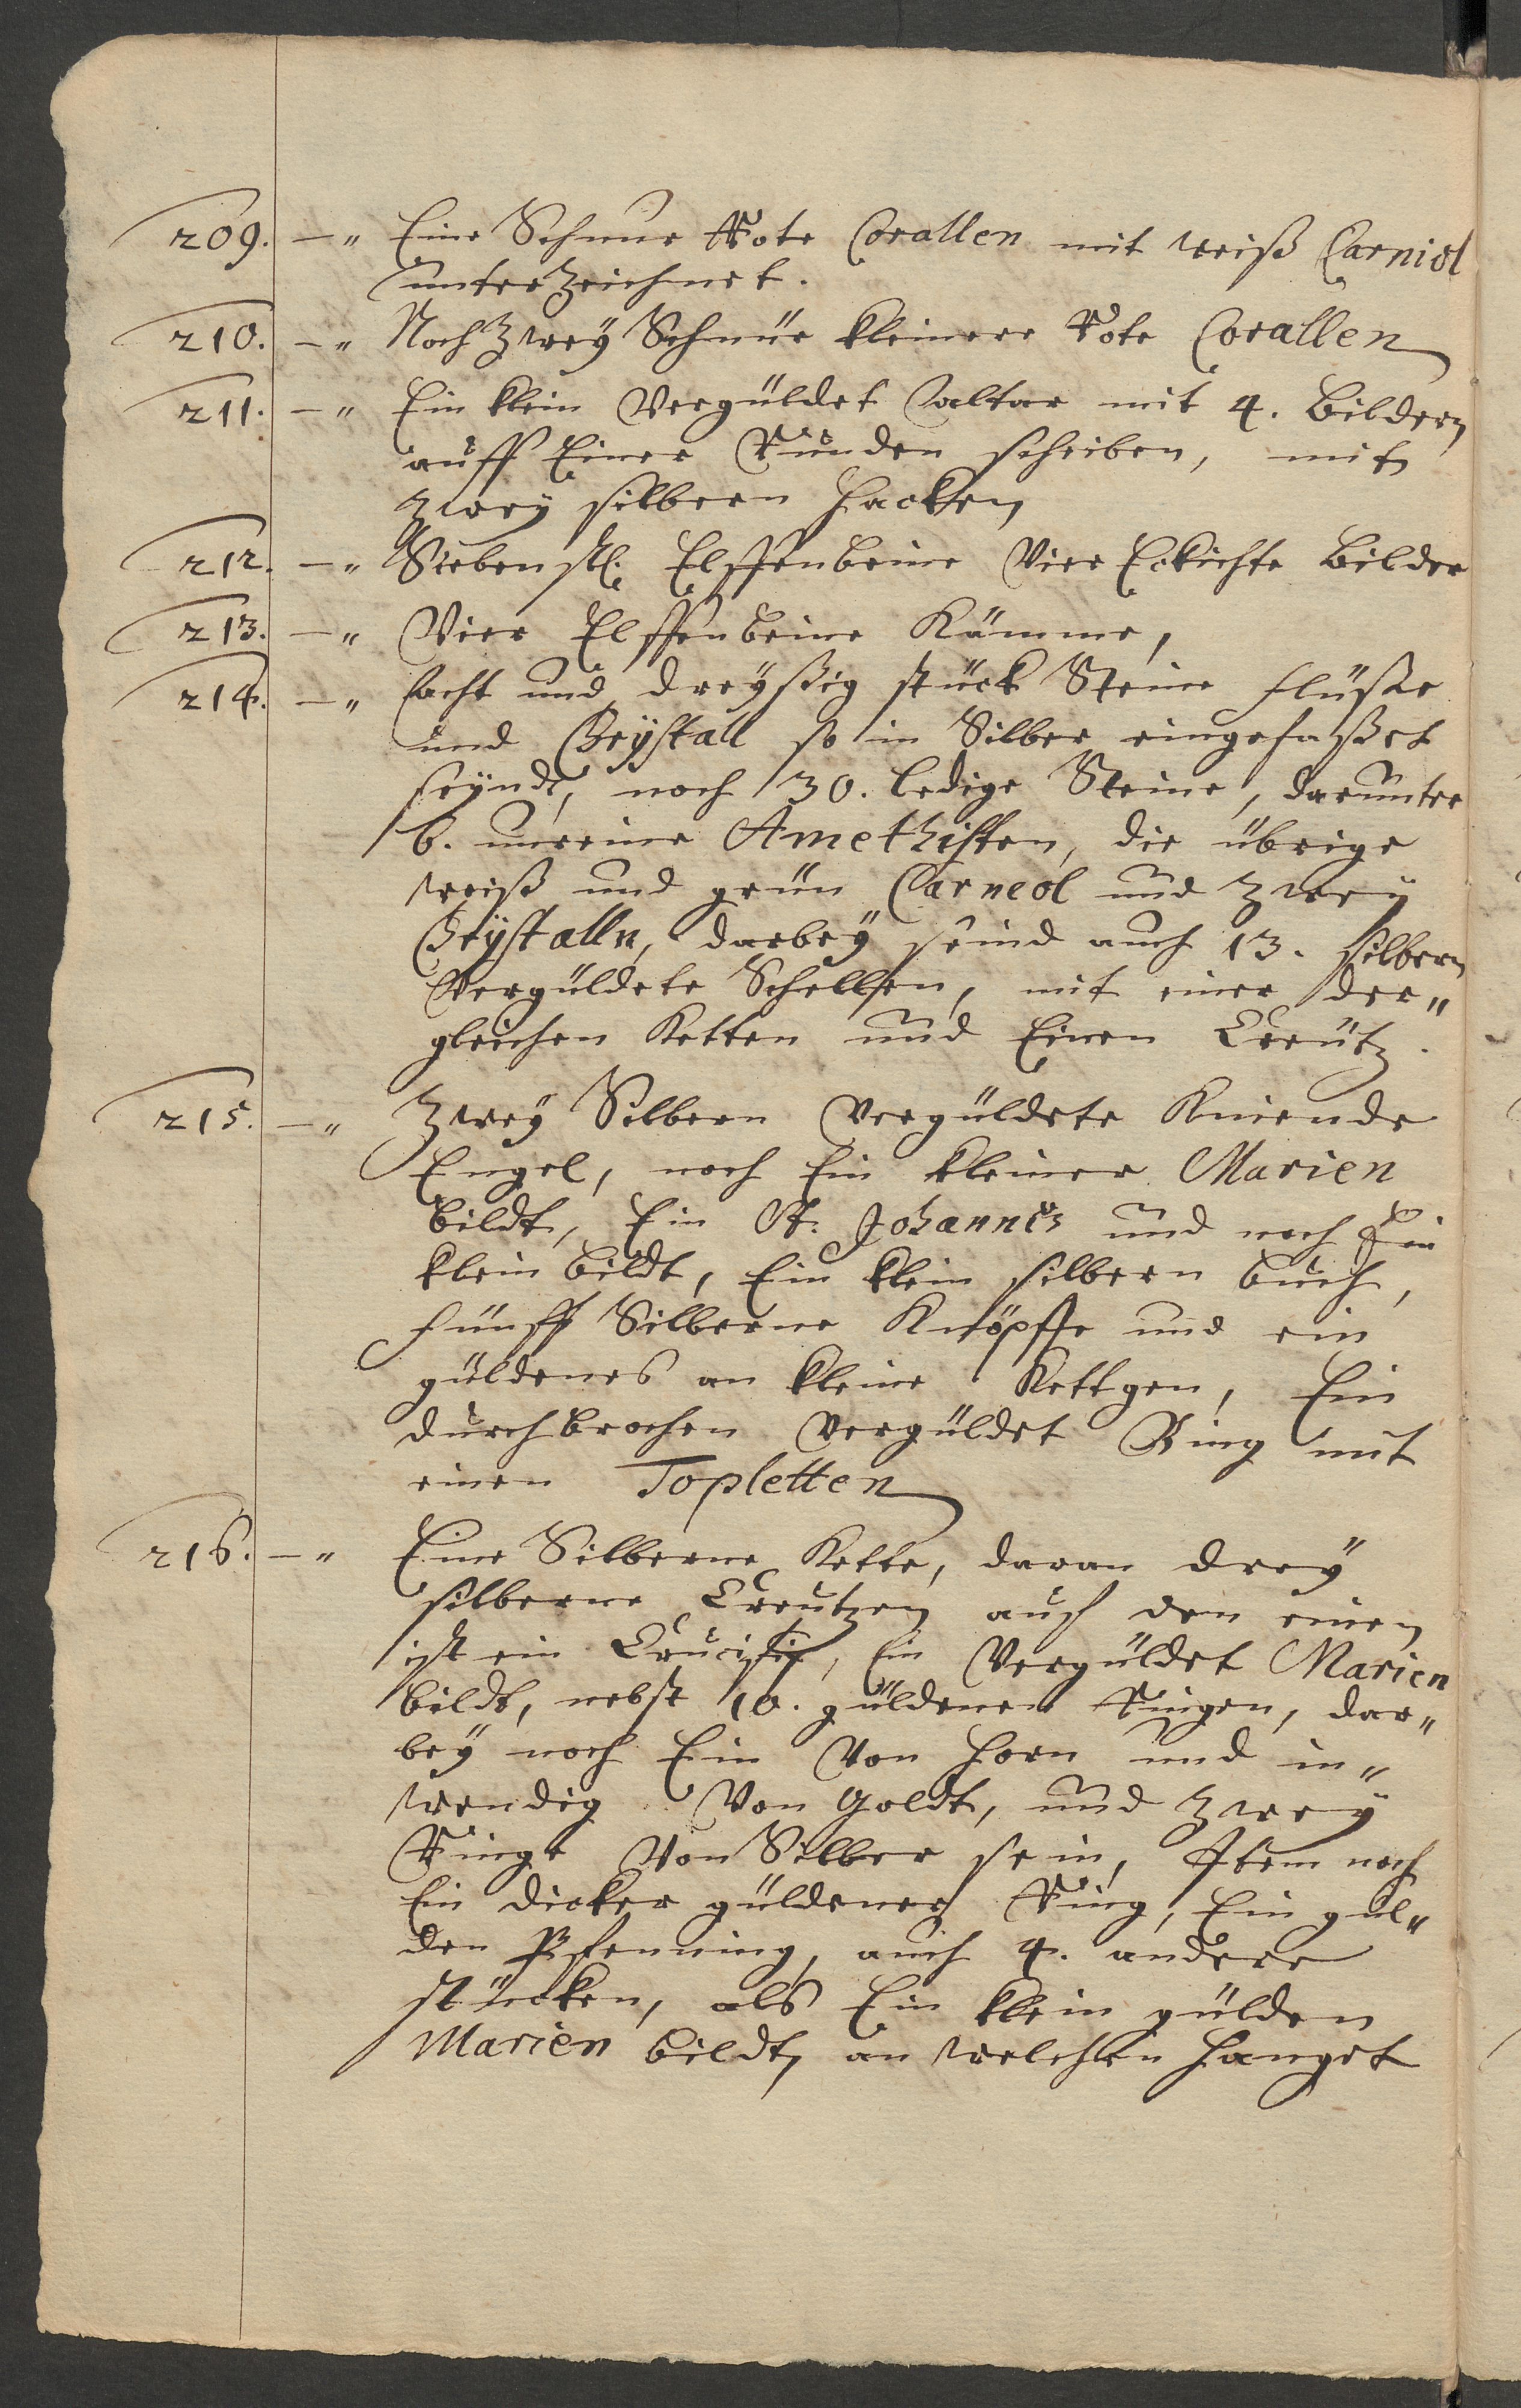 209. — " Eine Schnur Rote Corallen mit weiß Carniol
unterzeichnet.
210. — " Noch Zwey Schnür kleinere Rote Corallen
211. — " Ein klein Vergüldet Altar mit 4. Bildern
auff Einer Runden scheiben, mit
zwey silbern Hacken
212. — " Sieben stl. Elffenbeine Vier Eckichte Bilder
213. — " Vier Elffenbeine Kämme,
214. — " Acht und dreyßig stück Steine flüße
und Crÿstall so in Silber eingefaßet
seÿndt, noch 30. ledige Steine, darunter
6. unreine Amethisten, die übrige
weiß und grün Carneol und zweÿ
Crÿstalln, darbeÿ seind auch 13. silbern
Vergüldete Schellen, mit einer der"
gleichen Ketten und Einen Creütz.
215. — " Zweÿ Silbern Vergüldete Kniende
Engel, noch Ein kleiner Marien
bildt, Ein St. Johannes und noch Ein
klein bildt, Ein klein silbern buch,
fünff Silberne Knöpffe und ein
güldenes an kleine Kettgen, Ein
durchbrochen Vergüldet Ring mit
einen Topletten
216. — " Eine Silberne Kette, daran dreÿ
silberne Creutzen auf den einen
ist ein Crucifix, Ein Vergüldet Marien
bildt, nebst 10. güldenen Ringen, dar"
beÿ noch Ein Von Horn und in"
wendig Von Goldt, und zweÿ
Ringe Von Silber sein, Item noch
Ein dicker güldener Ring, Ein gül"
den Pfenning, auch 4. andere
stücken, als Ein klein gülden
Marien bildt, an welchen Hanget